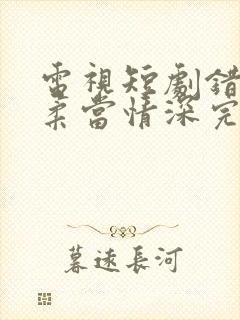 電視短劇錯
柔當情深完
暮遠長河